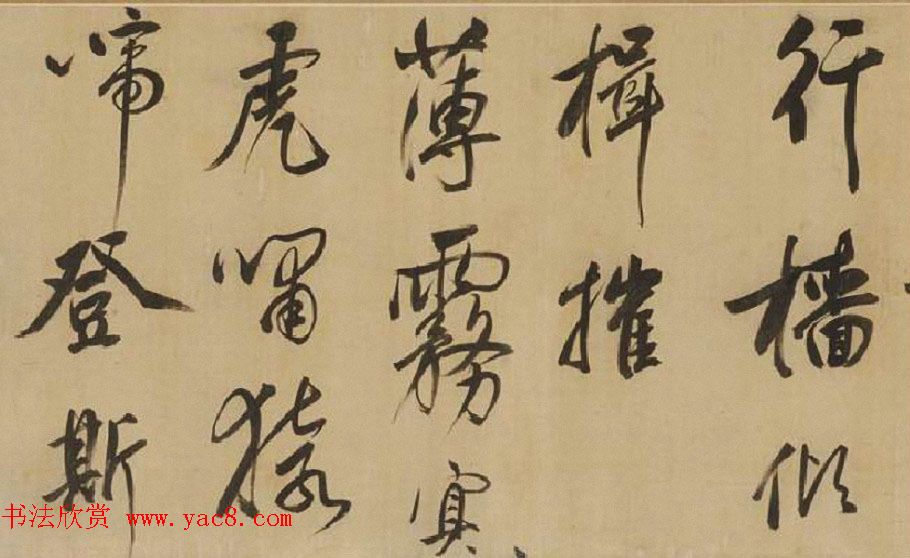 行檣傾
楫摧
薄霧寘
虎嘯猿
啼登斯
书法欣赏 www.yac8.com